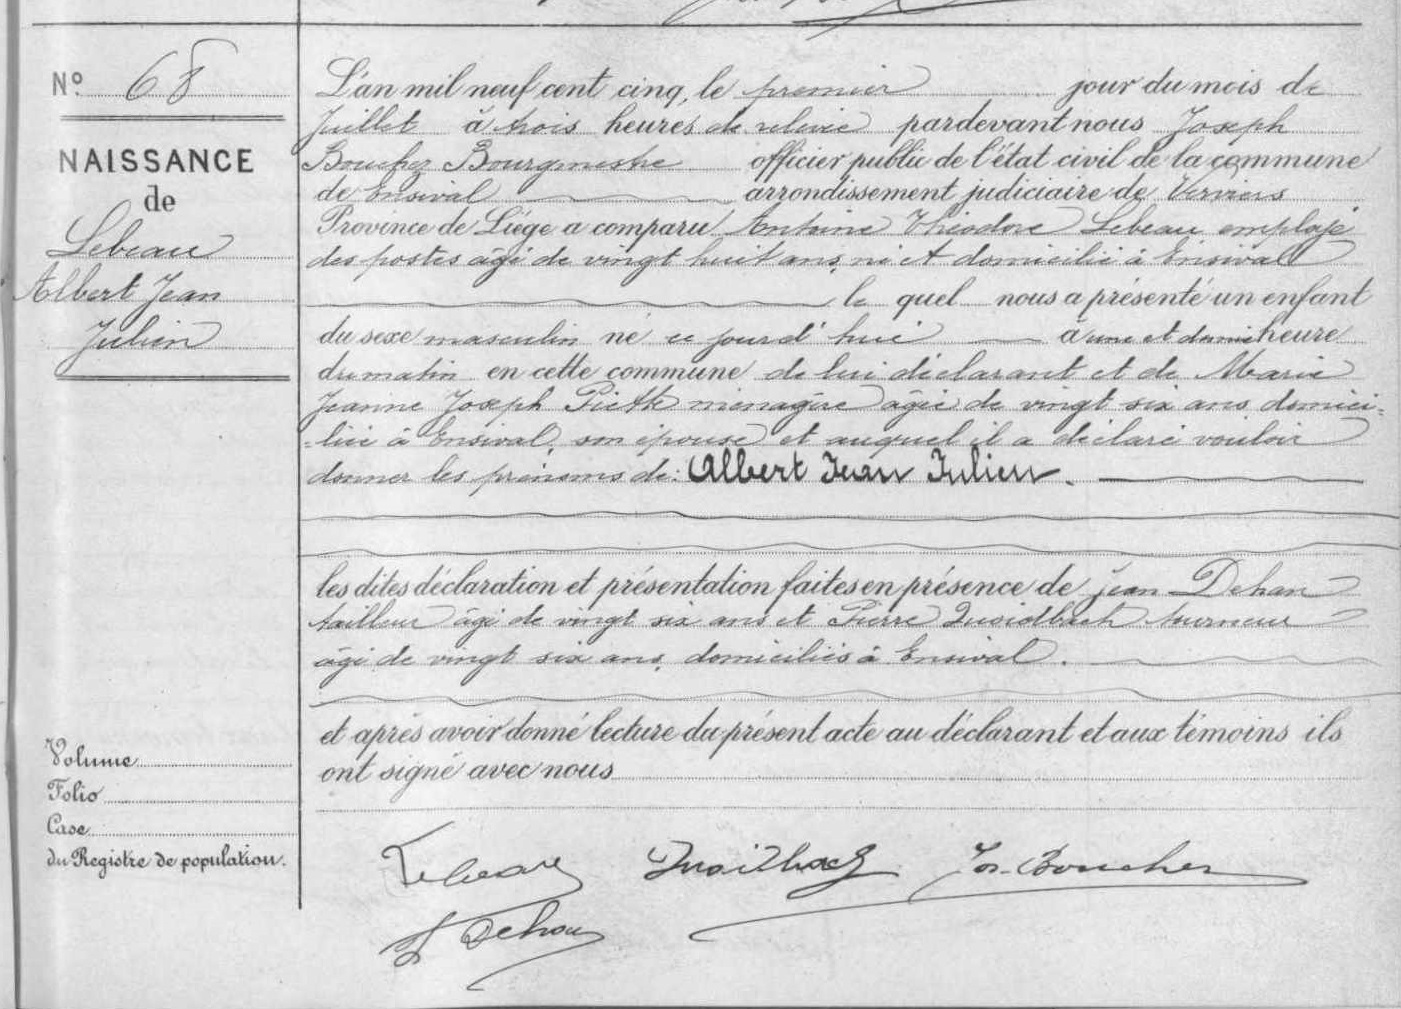 No 68
NAISSANCE
de
Lebeau
Albert Jean
Julien
L'an mil neuf cent cinq, le premier jour du mois de
Juillet à trois heures de relevée pardevant nous Joseph
Bouchez Bourgmestre officier public de l'état civil de la commune
de Ensival arrondissement judiciaire de Verviers
Province de Liége a comparu Antoine Théodore Lebeau employé
des postes âgé de vingt huit ans, né et domicilié à Ensival
le quel nous a présenté un enfant
du sexe masculin né ce jourd'hui à une et demie heure
du matin en cette commune de lui déclarant et de Marie
Jeanne Joseph ménagère âgée de vingt six ans domici-
-liée à Ensival, son épouse et auquel il a déclaré vouloir
donner les prénoms de: Albert Jean Julien.
les dites déclaration et présentation faites en présence de Jean Dehan
tailleur âgé de vingt six ans et Pierre tourneur
âgé de vingt six ans, domiciliés à Ensival.
et après avoir donné lecture du présent acte au déclarant et aux témoins ils
ont signé avec nous
Volume
Folio
Case
du Registre de population.
Lebeau Jos. Bouchez
J Dehan